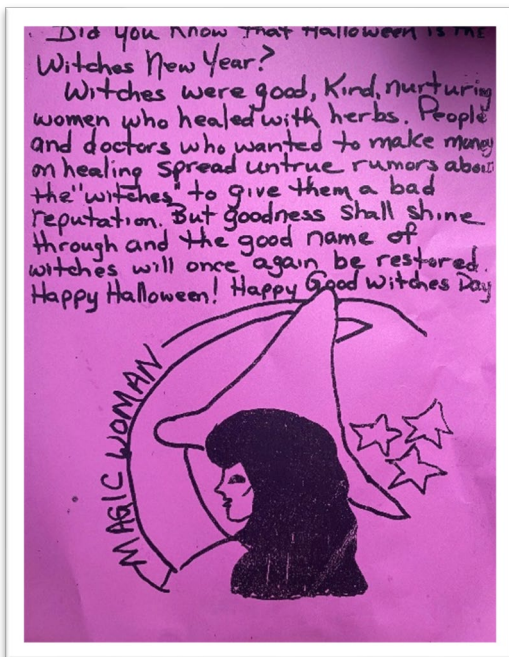 Did you know that Halloween is the
Witches New Year?
Witches were good, Kind, nurturing
women who healed with herbs. People
and doctors who wanted to make money
on healing spread untrue rumors about
the "witches" to give them a bad
reputation. But goodness shall shine
through and the good name of
witches will once again be restored.
Happy Halloween! Happy Good Witches Day
MAGIC WOMAN